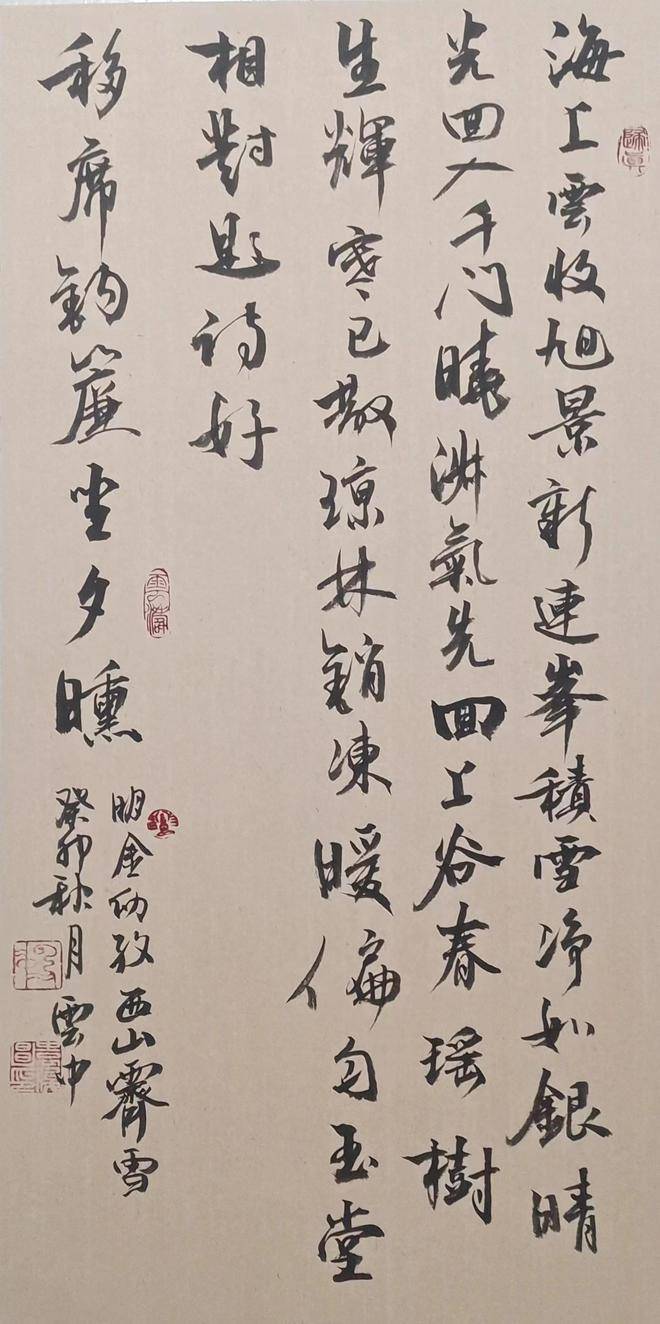 海上雲收旭景新連峯積雪净如銀晴
光囬入千门曉淑氣先囬上谷春瑶樹
生輝寒已散琼林銷凍暖偏匀玉堂
相對題诗好
移席鈎簾坐夕曛
明金幼孜西山霽雪
癸卯秋月雲中